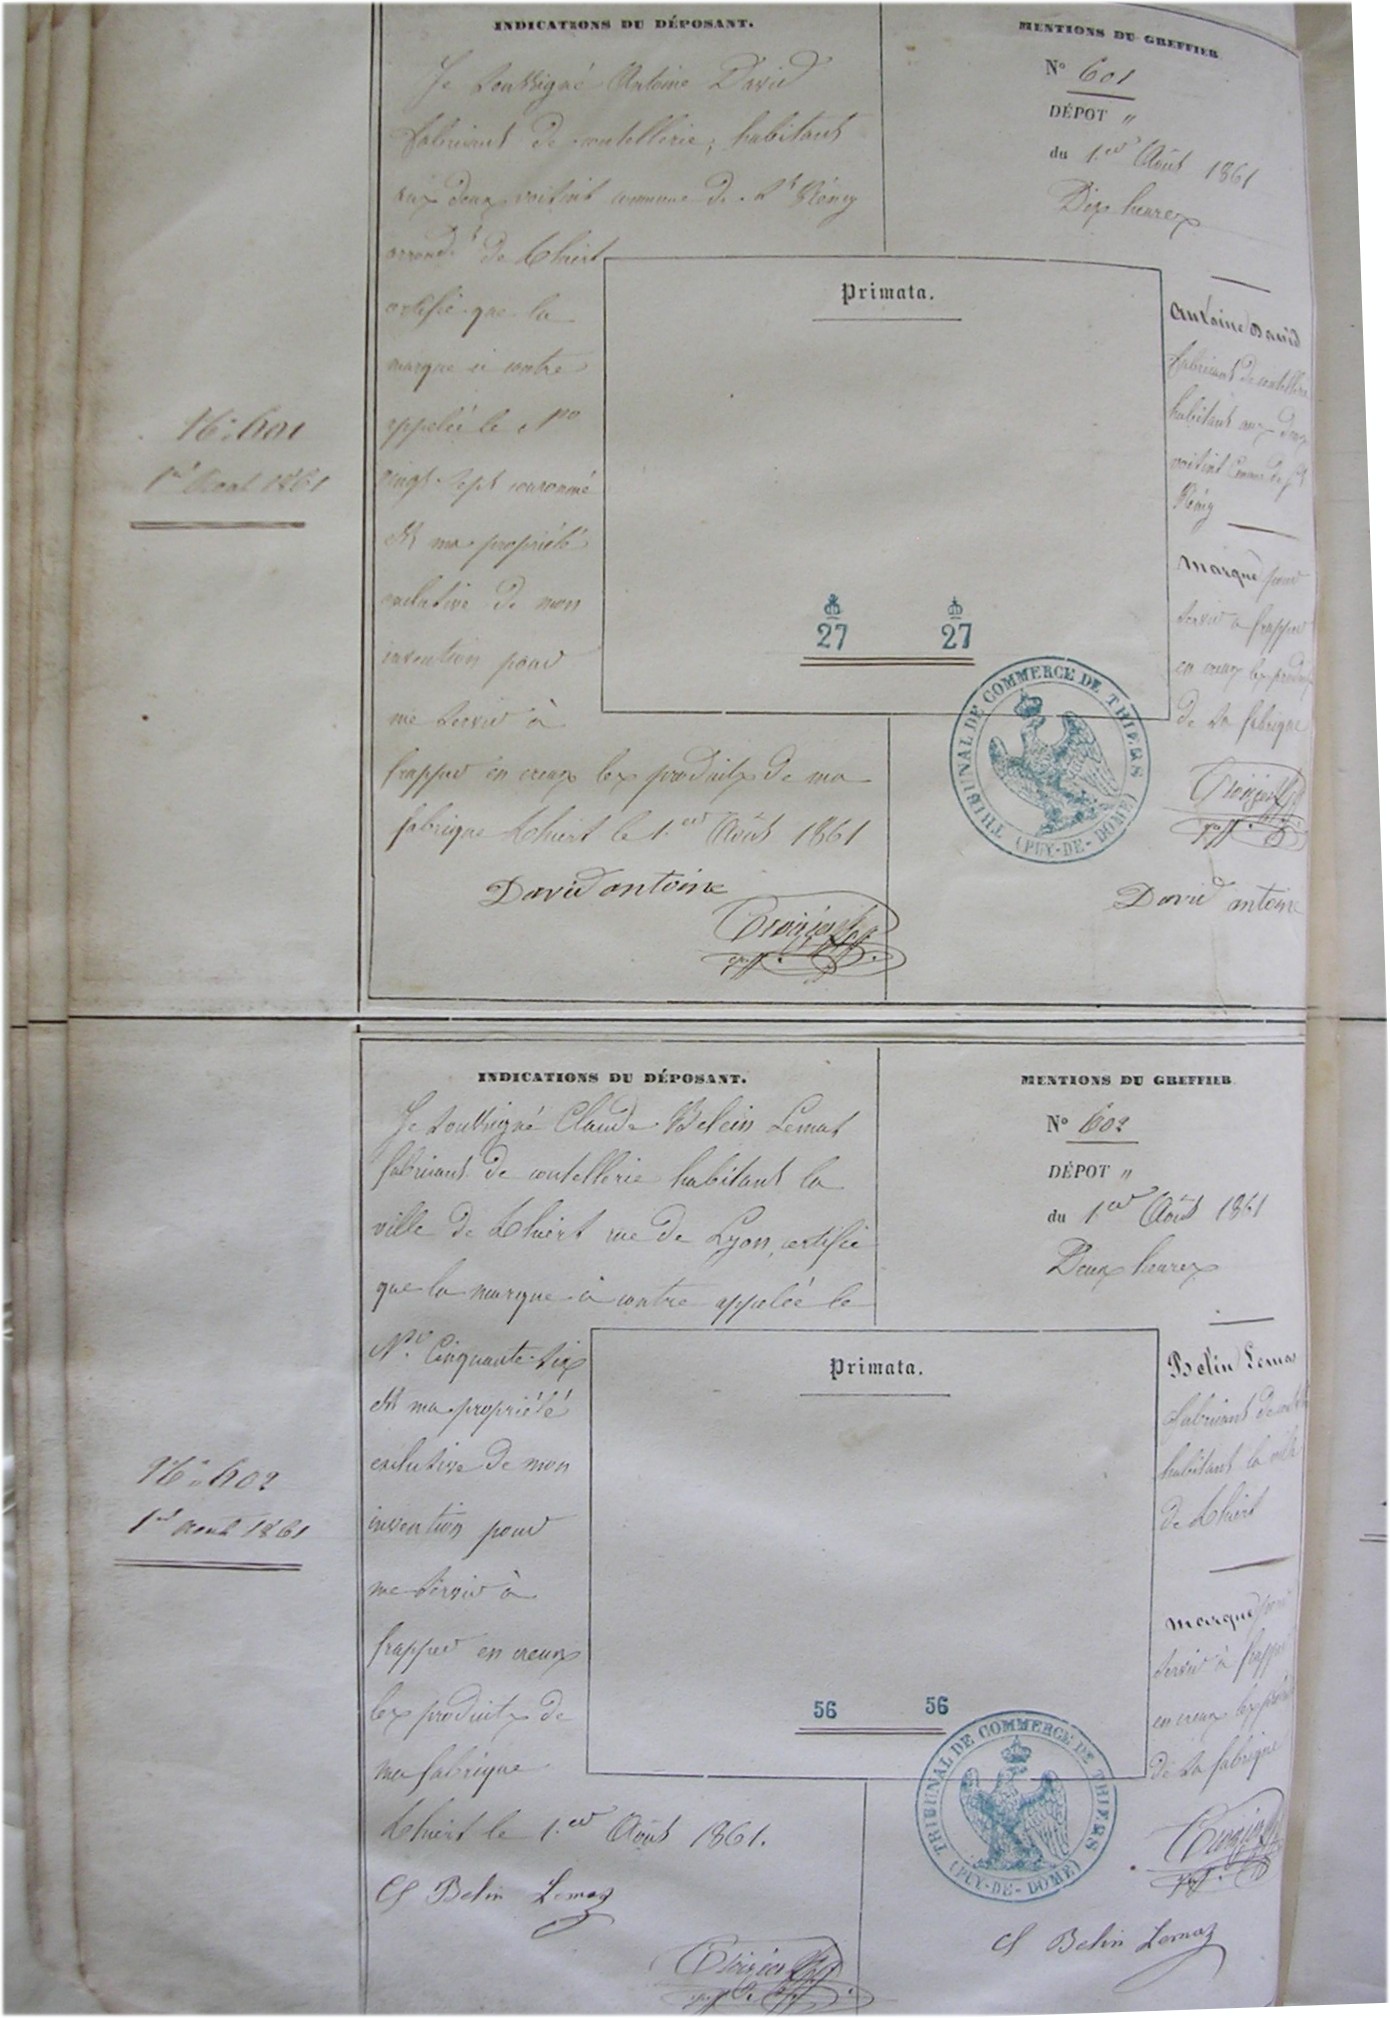 INDICATIONS DU DÉPOSANT.
Je soussigné Antoine David
fabricant de coutellerie, habitant
aux deux voisins commune de St Rémy
arrondt de Thiers
certifie que la
marque ci contre
appelée le No
vingt-sept couronné
est ma propriété
exclusive de mon
invention pour
me servir à
frapper en creux les produits de ma
fabrique Thiers le 1.er Août 1861
David antoine
MENTIONS DU GREFFIER
No 601
DÉPOT "
du 1.er Août 1861
Dix heures
Primata.
27 27
TRIBUNAL DE COMMERCE DE THIERS
(PUY-DE-DOME)
Antoine David
fabricant de coutellerie
habitant aux deux
voisins Comne de St
Rémy
Marque pour
servir à frapper
en creux les produits
de sa fabrique
David antoine
No. 601
1er Aout 1861
INDICATIONS DU DÉPOSANT.
Je soussigné Claude Belein Lemas
fabricant de coutellerie habitant la
ville de Thiers rue de Lyon, certifie
que la marque ci contre appelée le
No. Cinquante-six
est ma propriété
exclusive de mon
invention pour
me servir à
frapper en creux
les produits de
ma fabrique
Thiers le 1.er Août 1861.
Cl Belin Lemaz
MENTIONS DU GREFFIER
No 602
DÉPOT "
du 1er Août 1861
Deux heures
Primata.
56 56
TRIBUNAL DE COMMERCE DE THIERS
(PUY-DE-DOME)
Belin Lemas
fabricant de
habitant la ville
de Thiers
Marque pour
servir à frapper
en creux les produits
de sa fabrique
Cl Belin Lemaz
No. 602
1er Aout 1861